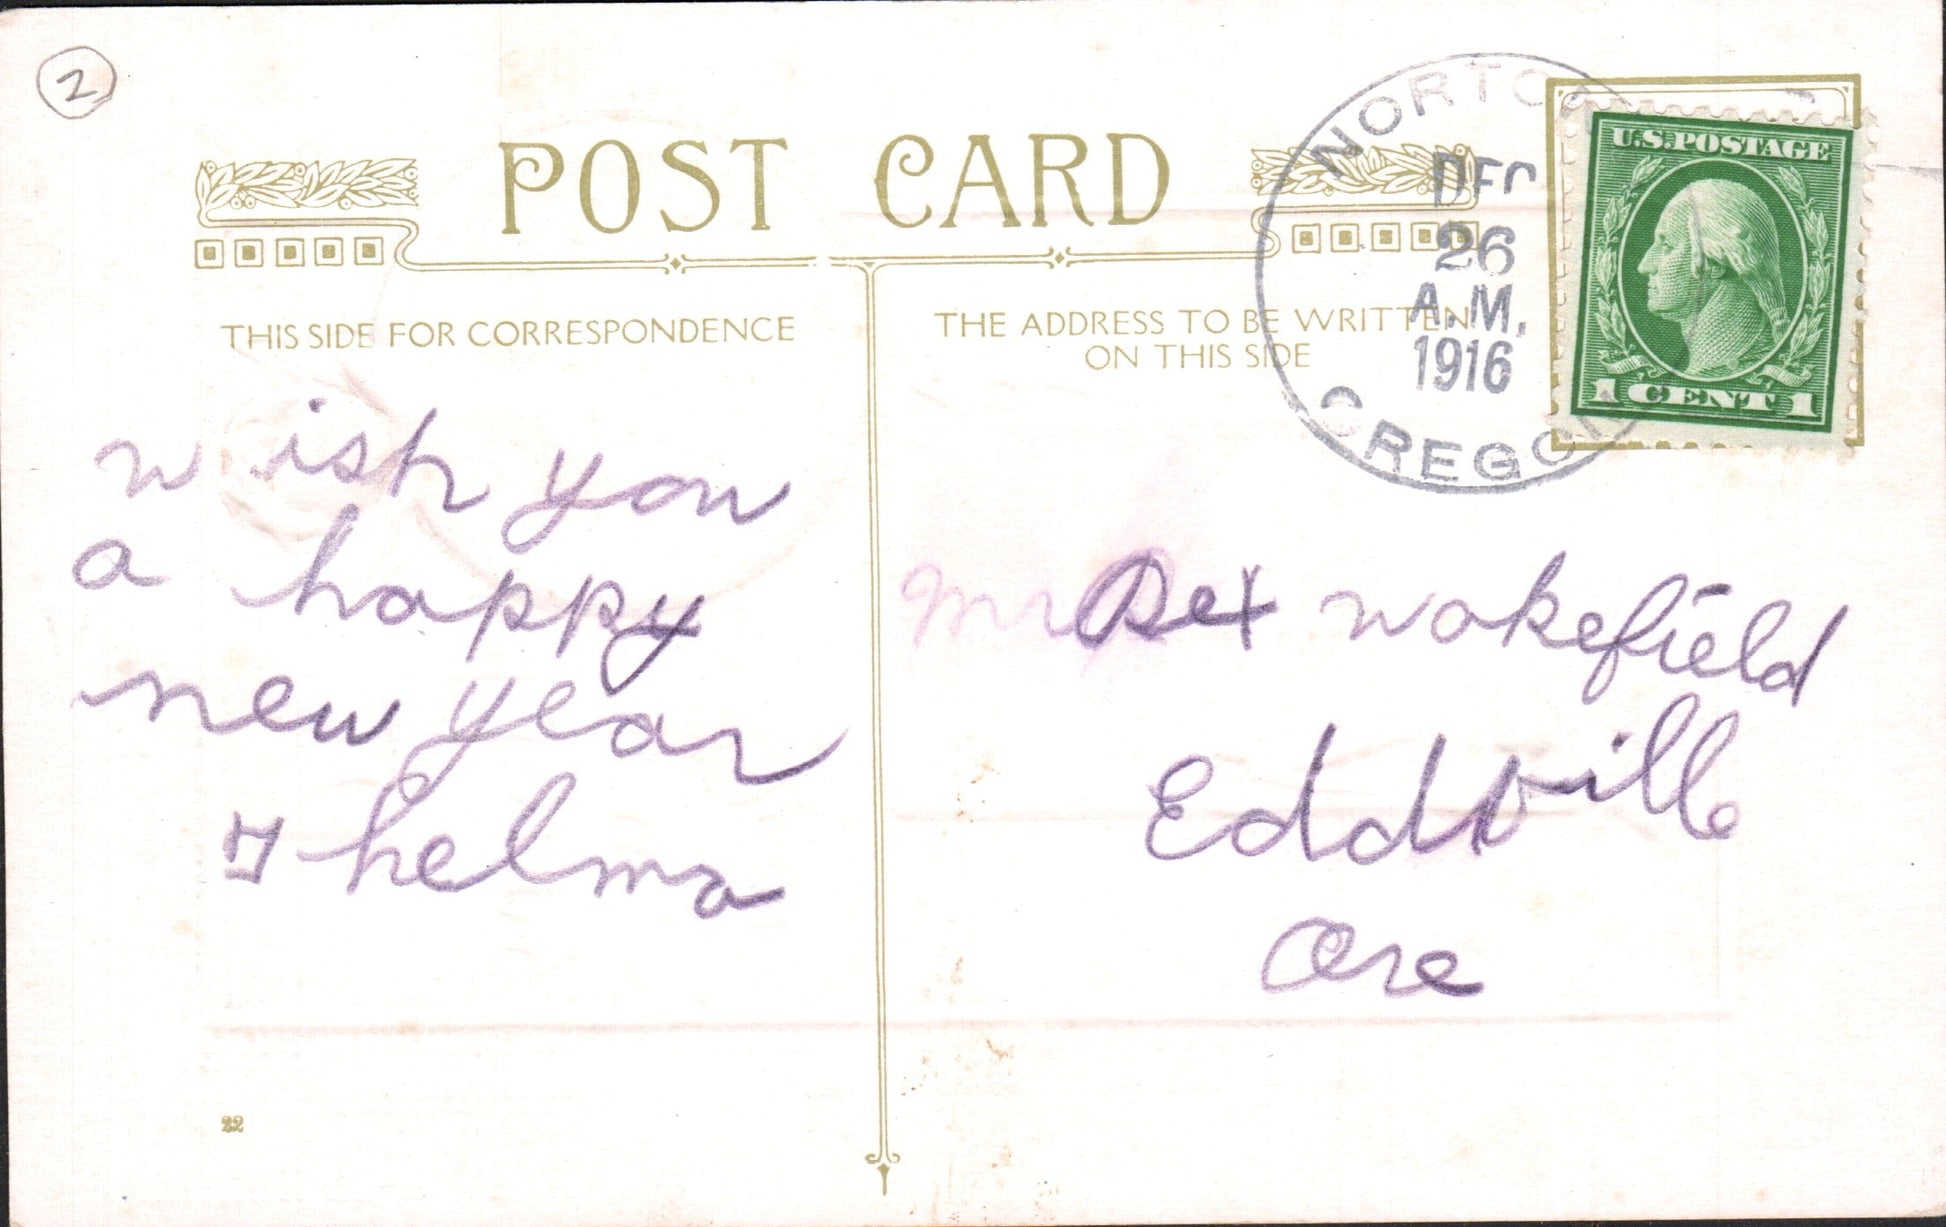 2
POST CARD
THIS SIDE FOR CORRESPONDENCE
THE ADDRESS TO BE WRITTEN
ON THIS SIDE
NORTO
DEC
26
A.M.
1916
OREGON
U.S.POSTAGE
1 CENT 1
wish you
a happy
new year
Thelma
Mr Dex Wakefield
Eddville
Ore
22